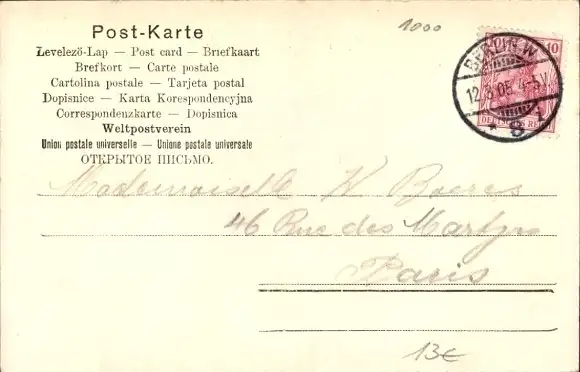 Post-Karte
Levelezö-Lap — Post card — Briefkaart
Brefkort — Carte postale
Cartolina postale — Tarjeta postal
Dopisnice — Karta Korespondencyjna
Correspondenzkarte — Dopisnica
Weltpostverein
Union postale universelle — Unione postale universale
ОТКРЫТОЕ ПИСЬМО.
1000
10
BERLIN W
12.8.05.4-5V.
* 8
DEUTSCHES REICH
Mademoiselle W Boeres
46 Rue des Martyrs
Paris
13€